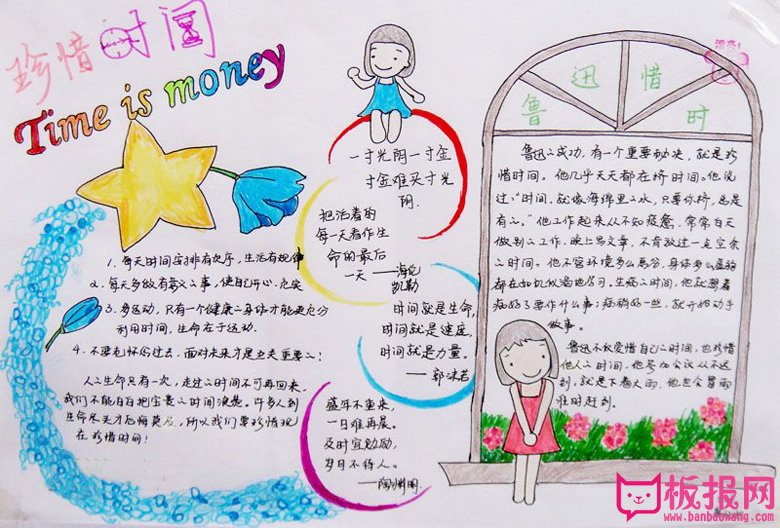 珍惜时间
Time is money
一寸光阴一寸金
寸金难买寸光
阴.
把活着的
每一天看作生
命的最后
一天
——海伦
凯勒
时间就是生命,
时间就是速度,
时间就是力量。
——郭沫若
盛年不重来,
一日难再晨。
及时宜勉励,
岁月不待人。
——陶渊明
1. 每天时间安排有次序,生活有规律
2. 每天多做有意义之事,使自己开心、充实
3. 多运动,只有一个健康之身体才能更充分
利用时间,生命在于运动.
4. 不要光怀念过去,面对未来才是至关重要之!
人之生命只有一次,走过之时间不可再回来,
我们不能白白把宝贵之时间浪费。许多人到
生命尽头才后悔莫及,所以我们要珍惜现
在珍惜时间!
漂亮!
鲁迅惜时
鲁迅之成功,有一个重要秘决,就是珍
惜时间。他几乎天天都在挤时间。他说
过:"时间,就像海绵里之水,只要你挤,总是
有之。"他工作起来从不知疲惫,常常白天
做别之工作,晚上写文章,不肯放过一走空余
之时间。他不管环境多么恶劣,身体多么虚弱
都在如饥似渴地学习。生病之时间,他就想着
病好了要作什么事;病稍好一些,就开始动手
做事。
鲁迅不仅爱惜自己之时间,也珍惜
他人之时间,他参加会议从不迟
到,就是下着大雨,他也会冒雨
准时赶到。
板报网
www.banbaowang.com